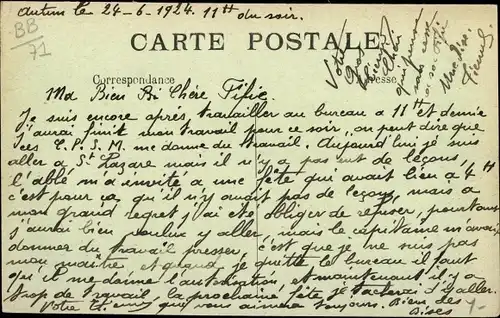 Autun le 24-6-1924. 11h du soir.
BB
71
CARTE POSTALE
Correspondance
Adresse
Ma Bien Bi Chère Fifie
Je suis encore après travailler au bureau a 11h et demie
j'aurai finit mon travail pour ce soir, on peut dire que
ces T.P.S.M. me donne du travail. Aujourd'hui je suis
aller a St Lazare mais il n'y a pas eut de leçons,
l'abbé m'a invité a une fête qui avait lieu a 4h
c'est pour ça qu'il n'y avait pas de leçons, mais a
mon grand regret j'ai été obliger de refuser, pourtant
j'aurai bien voulux y aller, mais le capitaine m'avait
donner du travail presser, c'est que je ne suis pas
mon maître et quand je quitte le bureau il faut
qu'il me donne l'autorisation, et maintenant il y a
trop de travail la prochaine fête je tacherai d'y aller.
Votre Etienne que vous aimera toujours. Bien des
Bises
Votre
Gros
qui pense
sans cesse
a sa Fifie
Etienne